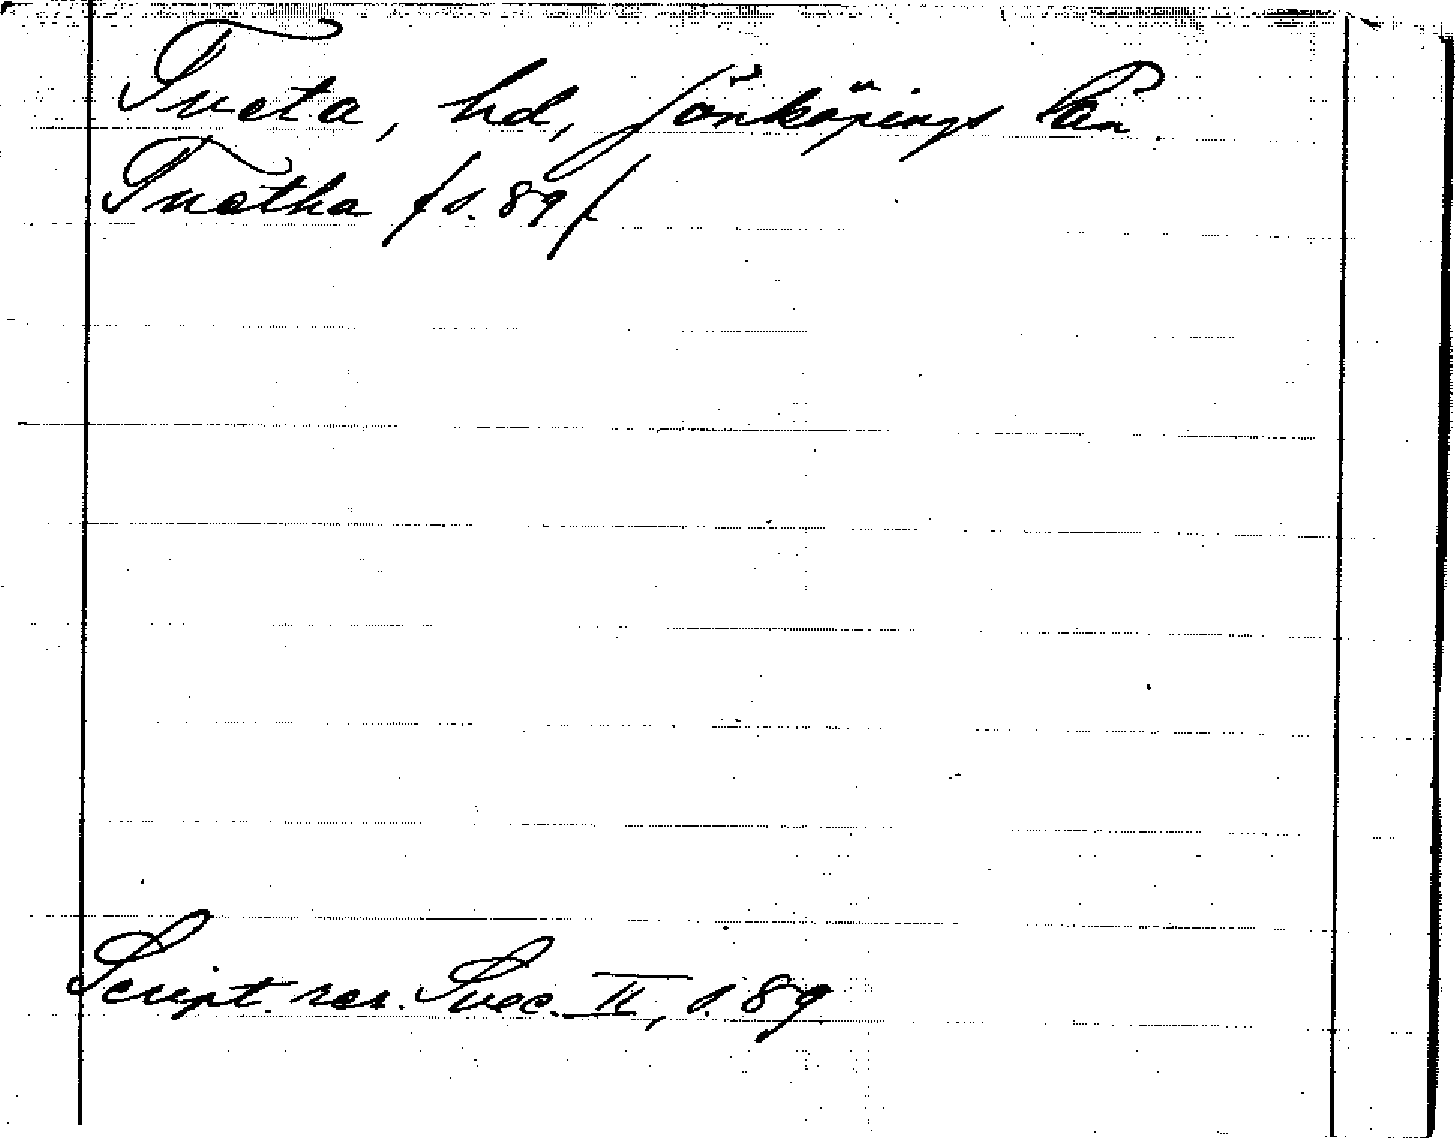 Tveta, hd, Jönköpings län
Tuetha /s. 89/
Script. rer. Svec. II, s. 89